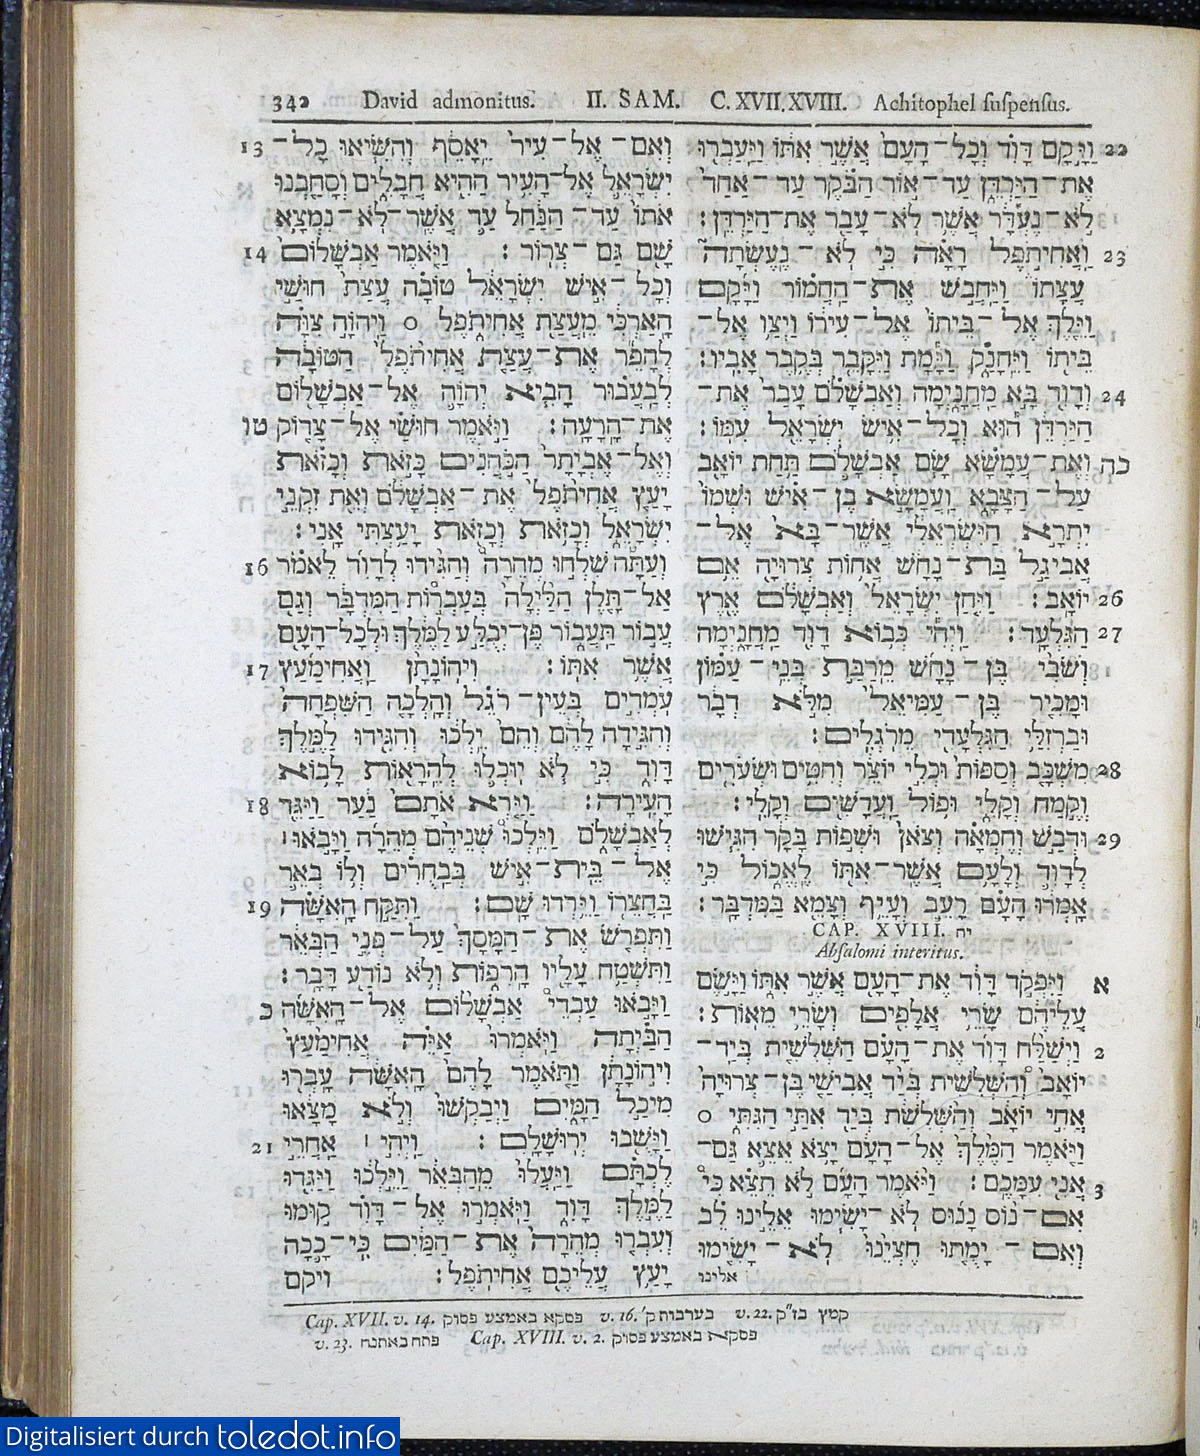 342 David admonitus. II. SAM. C. XVII. XVIII. Achitophel suspensus.
13 וְאִם־אֶל־עִיר יֵאָסֵף וְהִשִּׂיאוּ כָל־
יִשְׂרָאֵל אֶל־הָעִיר הַהִיא חֲבָלִים וְסָחַבְנוּ
אֹתוֹ עַד־הַנַּחַל עַד אֲשֶׁר־לֹא־נִמְצָא
14 שָׁם גַּם־צְרוֹר׃ וַיֹּאמֶר אַבְשָׁלוֹם
וְכָל־אִישׁ יִשְׂרָאֵל טוֹבָה עֲצַת חוּשַׁי
הָאַרְכִּי מֵעֲצַת אֲחִיתֹפֶל ○ וַיהוָה צִוָּה
לְהָפֵר אֶת־עֲצַת אֲחִיתֹפֶל הַטּוֹבָה
לְבַעֲבוּר הָבִיא יְהוָה אֶל־אַבְשָׁלוֹם
טו אֶת־הָרָעָה׃ וַיֹּאמֶר חוּשַׁי אֶל־צָדוֹק
וְאֶל־אֶבְיָתָר הַכֹּהֲנִים כָּזֹאת וְכָזֹאת
יָעַץ אֲחִיתֹפֶל אֶת־אַבְשָׁלֹם וְאֵת זִקְנֵי
יִשְׂרָאֵל וְכָזֹאת וְכָזֹאת יָעַצְתִּי אָנִי׃
16 וְעַתָּה שִׁלְחוּ מְהֵרָה וְהַגִּידוּ לְדָוִד לֵאמֹר
אַל־תָּלֶן הַלַּיְלָה בְּעַבְרוֹת הַמִּדְבָּר וְגַם
עָבוֹר תַּעֲבוֹר פֶּן־יְבֻלַּע לַמֶּלֶךְ וּלְכָל־הָעָם
17 אֲשֶׁר אִתּוֹ׃ וִיהוֹנָתָן וַאֲחִימַעַץ
עֹמְדִים בְּעֵין־רֹגֵל וְהָלְכָה הַשִּׁפְחָה
וְהִגִּידָה לָהֶם וְהֵם יֵלְכוּ וְהִגִּידוּ לַמֶּלֶךְ
דָּוִד כִּי לֹא יוּכְלוּ לְהֵרָאוֹת לָבוֹא
18 הָעִירָה׃ וַיַּרְא אֹתָם נַעַר וַיַּגֵּד
לְאַבְשָׁלֹם וַיֵּלְכוּ שְׁנֵיהֶם מְהֵרָה וַיָּבֹאוּ׀
אֶל־בֵּית־אִישׁ בְּבַחֻרִים וְלוֹ בְאֵר
19 בַּחֲצֵרוֹ וַיֵּרְדוּ שָׁם׃ וַתִּקַּח הָאִשָּׁה
וַתִּפְרֹשׂ אֶת־הַמָּסָךְ עַל־פְּנֵי הַבְּאֵר
וַתִּשְׁטַח עָלָיו הָרִפוֹת וְלֹא נוֹדַע דָּבָר׃
כ וַיָּבֹאוּ עַבְדֵי אַבְשָׁלוֹם אֶל־הָאִשָּׁה
הַבַּיְתָה וַיֹּאמְרוּ אַיֵּה אֲחִימַעַץ
וִיהוֹנָתָן וַתֹּאמֶר לָהֶם הָאִשָּׁה עָבְרוּ
מִיכַל הַמָּיִם וַיְבַקְשׁוּ וְלֹא מָצָאוּ
21 וַיָּשֻׁבוּ יְרוּשָׁלִָם׃ וַיְהִי׀ אַחֲרֵי
לֶכְתָּם וַיַּעֲלוּ מֵהַבְּאֵר וַיֵּלְכוּ וַיַּגִּדוּ
לַמֶּלֶךְ דָּוִד וַיֹּאמְרוּ אֶל־דָּוִד קוּמוּ
וְעִבְרוּ מְהֵרָה אֶת־הַמַּיִם כִּי־כָכָה
יָעַץ עֲלֵיכֶם אֲחִיתֹפֶל׃ ויקם
22 וַיָּקָם דָּוִד וְכָל־הָעָם אֲשֶׁר אִתּוֹ וַיַּעַבְרוּ
אֶת־הַיַּרְדֵּן עַד־אוֹר הַבֹּקֶר עַד־אַחַד
לֹא־נֶעְדָּר אֲשֶׁר לֹא־עָבַר אֶת־הַיַּרְדֵּן׃
23 וַאֲחִיתֹפֶל רָאָה כִּי לֹא־נֶעֶשְׂתָה
עֲצָתוֹ וַיַּחֲבֹשׁ אֶת־הַחֲמוֹר וַיָּקָם
וַיֵּלֶךְ אֶל־בֵּיתוֹ אֶל־עִירוֹ וַיְצַו אֶל־
בֵּיתוֹ וַיֵּחָנַק וַיָּמָת וַיִּקָּבֵר בְּקֶבֶר אָבִיו׃
24 וְדָוִד בָּא מַחֲנָיְמָה וְאַבְשָׁלֹם עָבַר אֶת־
הַיַּרְדֵּן הוּא וְכָל־אִישׁ יִשְׂרָאֵל עִמּוֹ׃
כה וְאֶת־עֲמָשָׂא שָׂם אַבְשָׁלֹם תַּחַת יוֹאָב
עַל־הַצָּבָא וַעֲמָשָׂא בֶן־אִישׁ וּשְׁמוֹ
יִתְרָא הַיִּשְׂרְאֵלִי אֲשֶׁר־בָּא אֶל־
אֲבִיגַל בַּת־נָחָשׁ אֲחוֹת צְרוּיָה אֵם
26 יוֹאָב׃ וַיִּחַן יִשְׂרָאֵל וְאַבְשָׁלֹם אֶרֶץ
27 הַגִּלְעָד׃ וַיְהִי כְּבוֹא דָוִד מַחֲנָיְמָה
וְשֹׁבִי בֶן־נָחָשׁ מֵרַבַּת בְּנֵי־עַמּוֹן
וּמָכִיר בֶּן־עַמִּיאֵל מִלֹּא דְבָר
וּבַרְזִלַּי הַגִּלְעָדִי מֵרֹגְלִים׃
28 מִשְׁכָּב וְסַפּוֹת וּכְלִי יוֹצֵר וְחִטִּים וּשְׂעֹרִים
וְקֶמַח וְקָלִי וּפוֹל וַעֲדָשִׁים וְקָלִי׃
29 וּדְבַשׁ וְחֶמְאָה וְצֹאן וּשְׁפוֹת בָּקָר הִגִּישׁוּ
לְדָוִד וְלָעָם אֲשֶׁר־אִתּוֹ לֶאֱכוֹל כִּי
אָמְרוּ הָעָם רָעֵב וְעָיֵף וְצָמֵא בַּמִּדְבָּר׃
CAP. XVIII. יח
Absalomi interitus.
א וַיִּפְקֹד דָּוִד אֶת־הָעָם אֲשֶׁר אִתּוֹ וַיָּשֶׂם
עֲלֵיהֶם שָׂרֵי אֲלָפִים וְשָׂרֵי מֵאוֹת׃
2 וַיְשַׁלַּח דָּוִד אֶת־הָעָם הַשְּׁלִשִׁית בְּיַד־
יוֹאָב וְהַשְּׁלִשִׁית בְּיַד אֲבִישַׁי בֶּן־צְרוּיָה
אֲחִי יוֹאָב וְהַשְּׁלִשִׁת בְּיַד אִתַּי הַגִּתִּי ○
וַיֹּאמֶר הַמֶּלֶךְ אֶל־הָעָם יָצֹא אֵצֵא גַּם־
3 אֲנִי עִמָּכֶם׃ וַיֹּאמֶר הָעָם לֹא תֵצֵא כִּי
אִם־נוֹס נָנוּס לֹא־יָשִׂימוּ אֵלֵינוּ לֵב
וְאִם־יָמֻתוּ חֶצְיֵנוּ לֹא־יָשִׂימוּ
אלינו
Cap. XVII. v. 14. פסקא באמצע פסוק v. 16. בערבות ק' v. 22. קמץ בז"ק
v. 23. פתח באתנח Cap. XVIII. v. 2. פסקא באמצע פסוק
Digitalisiert durch toledot.info